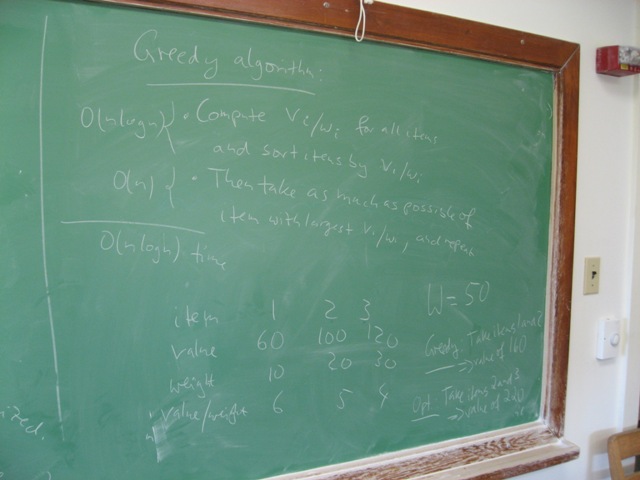 Greedy algorithm:
O(nlogn) { • Compute Vi/wi for all items
and sort items by Vi/wi
O(n) { • Then take as much as possible of
item with largest Vi/wi, and repeat
O(nlogn) time
item 1 2 3
value 60 100 120
weight 10 20 30
value/weight 6 5 4
W=50
Greedy: Take items 1 and 2
=> value of 160
Opt: Take items 2 and 3
=> value of 220
ized.